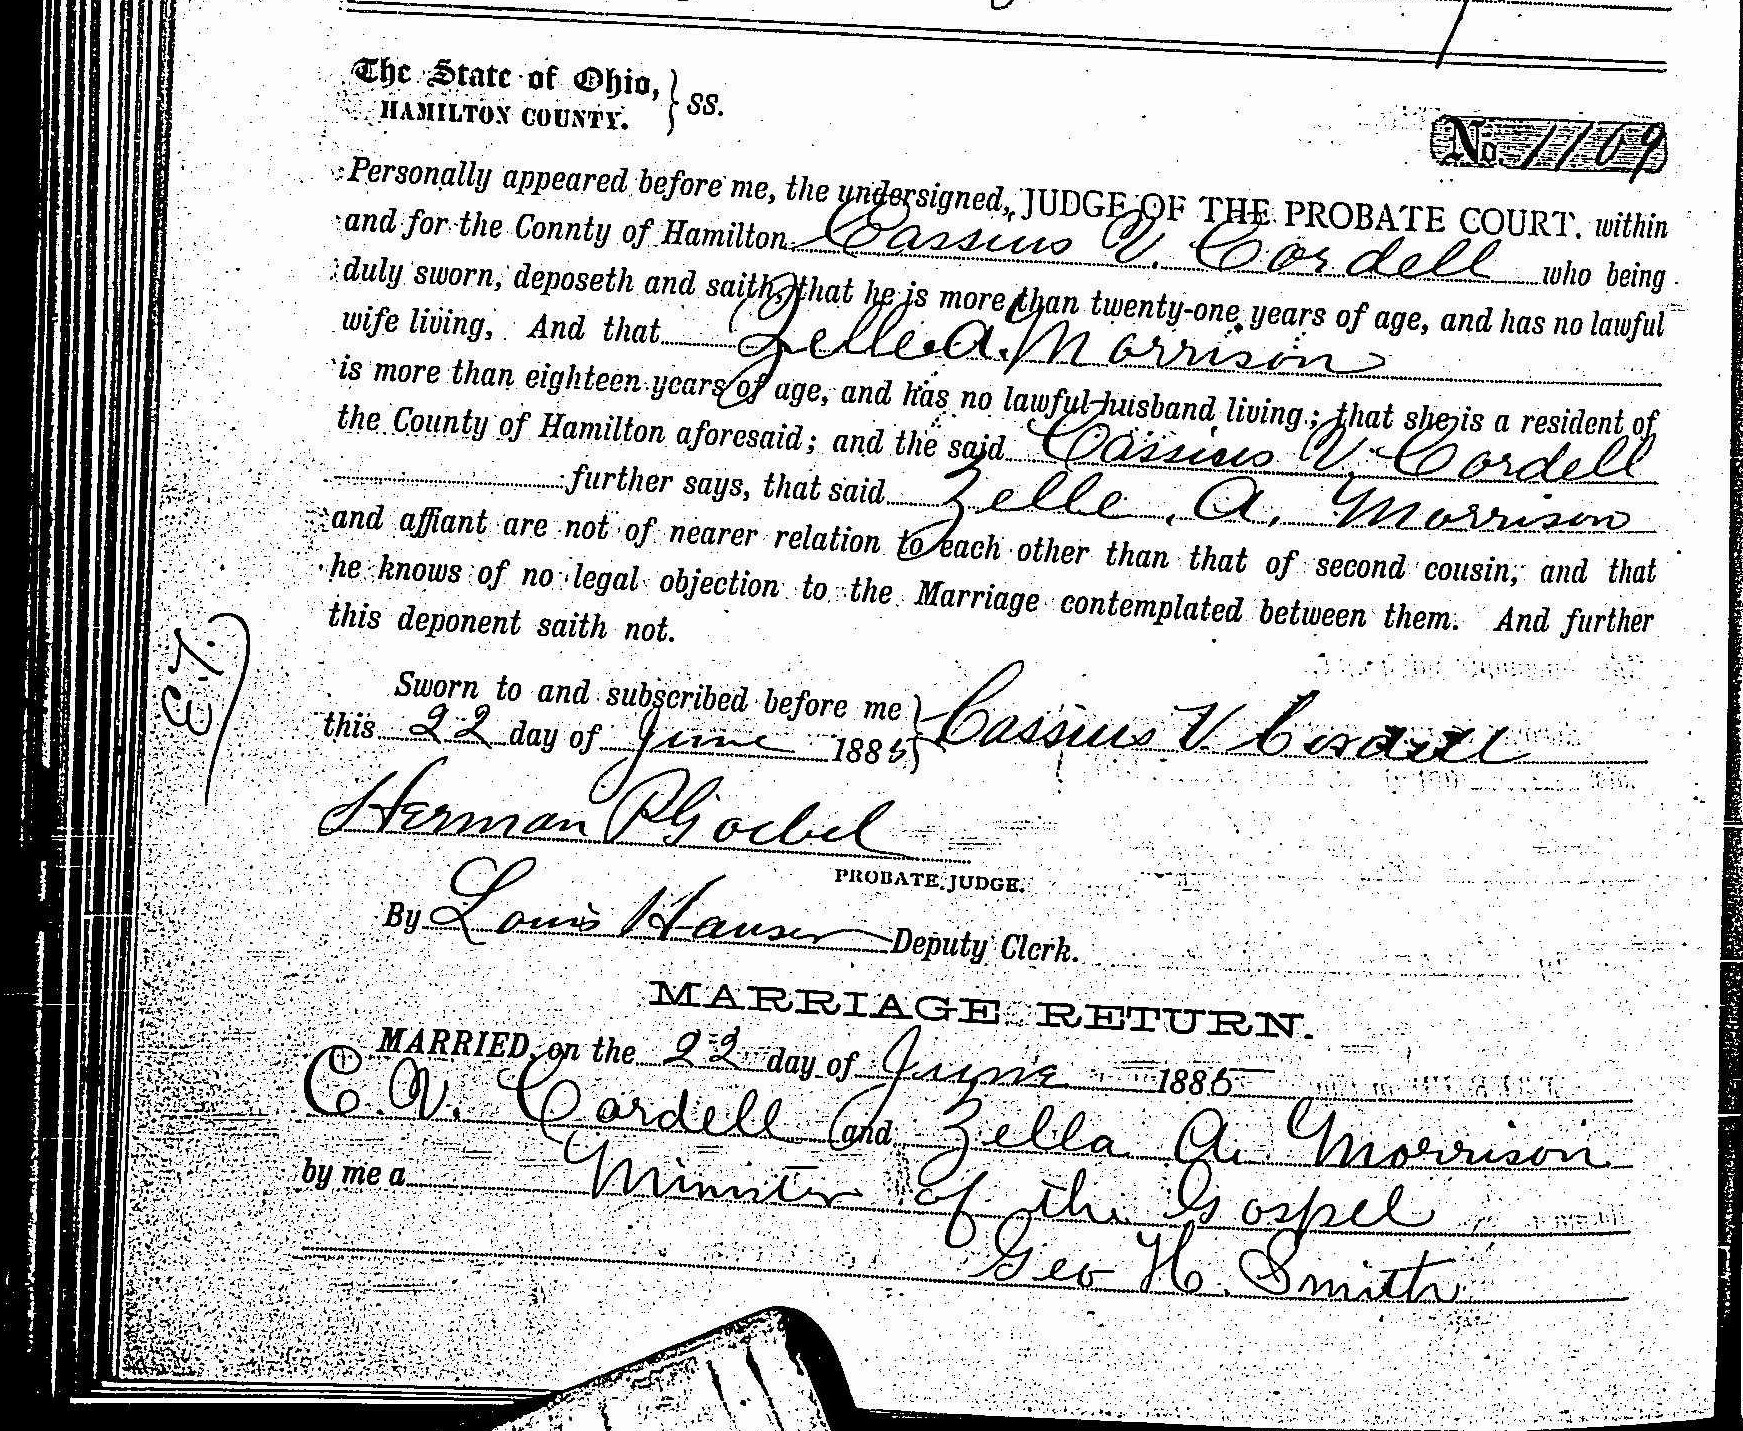 The State of Ohio,
HAMILTON COUNTY. } SS.
No. 1169
Personally appeared before me, the undersigned, JUDGE OF THE PROBATE COURT. within
and for the Connty of Hamilton Cassius V. Cordell who being
duly sworn, deposeth and saith, that he is more than twenty-one years of age, and has no lawful
wife living, And that Zelle A. Morrison
is more than eighteen years of age, and has no lawful husband living; that she is a resident of
the County of Hamilton aforesaid; and the said Cassius V. Cordell
further says, that said Zelle. A. Morrison
and affiant are not of nearer relation to each other than that of second cousin, and that
he knows of no legal objection to the Marriage contemplated between them. And further
this deponent saith not.
E.T.
Sworn to and subscribed before me
this 22 day of June 1885 } Cassius V. Cordell
Herman P Goebel
PROBATE JUDGE.
By Louis Hauser Deputy Clerk.
MARRIAGE RETURN.
MARRIED, on the 22 day of June 1885
C. V. Cordell and Zella A. Morrison
by me a Minister of the Gospel
Geo H. Smith